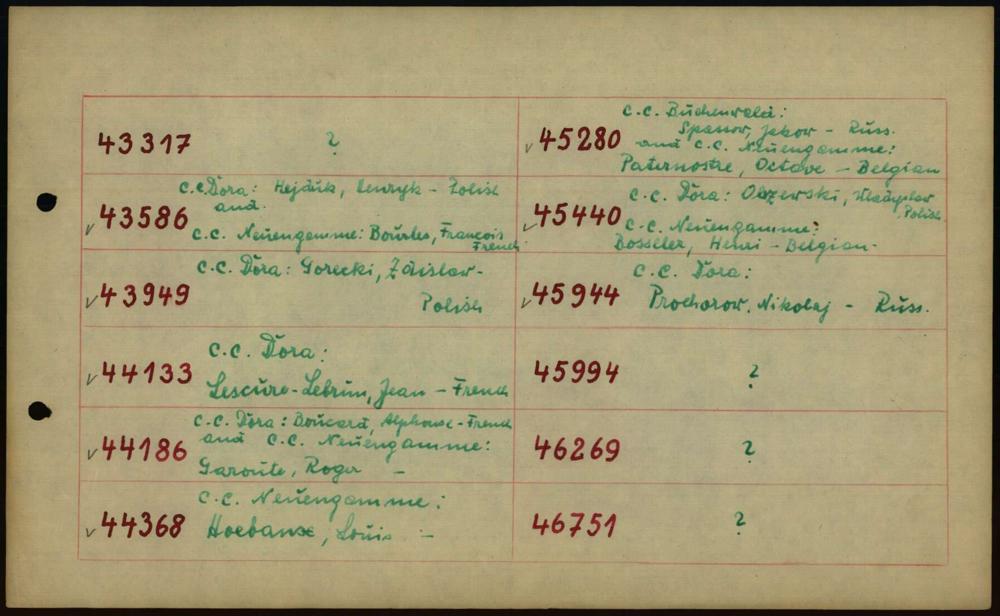 43317 ?
c.c. Dora: Hejduk, Henryk - Polish
and
✓ 43586
c.c. Neuengamme: Bourles, François
French
c.c. Dora: Gorecki, Zdislaw -
✓ 43949
Polish
c.c. Dora:
✓ 44133
Lescure-Lebrun, Jean - French
c.c. Dora: Boucard, Alphonse - French
and c.c. Neuengamme:
✓ 44186
Garoute, Roger -
c.c. Neuengamme:
✓ 44368
Hoebanx, Louis -
c.c. Buchenwald:
Spassow, Jakow - Russ.
✓ 45280
and c.c. Neuengamme:
Paternostre, Octave - Belgian
c.c. Dora: Wladyslaw
Polish
✓ 45440
c.c. Neuengamme:
Bosseler, Henri - Belgian -
c.c. Dora:
✓ 45944
Prochorow, Nikolaj - Russ.
45994 ?
46269 ?
46751 ?